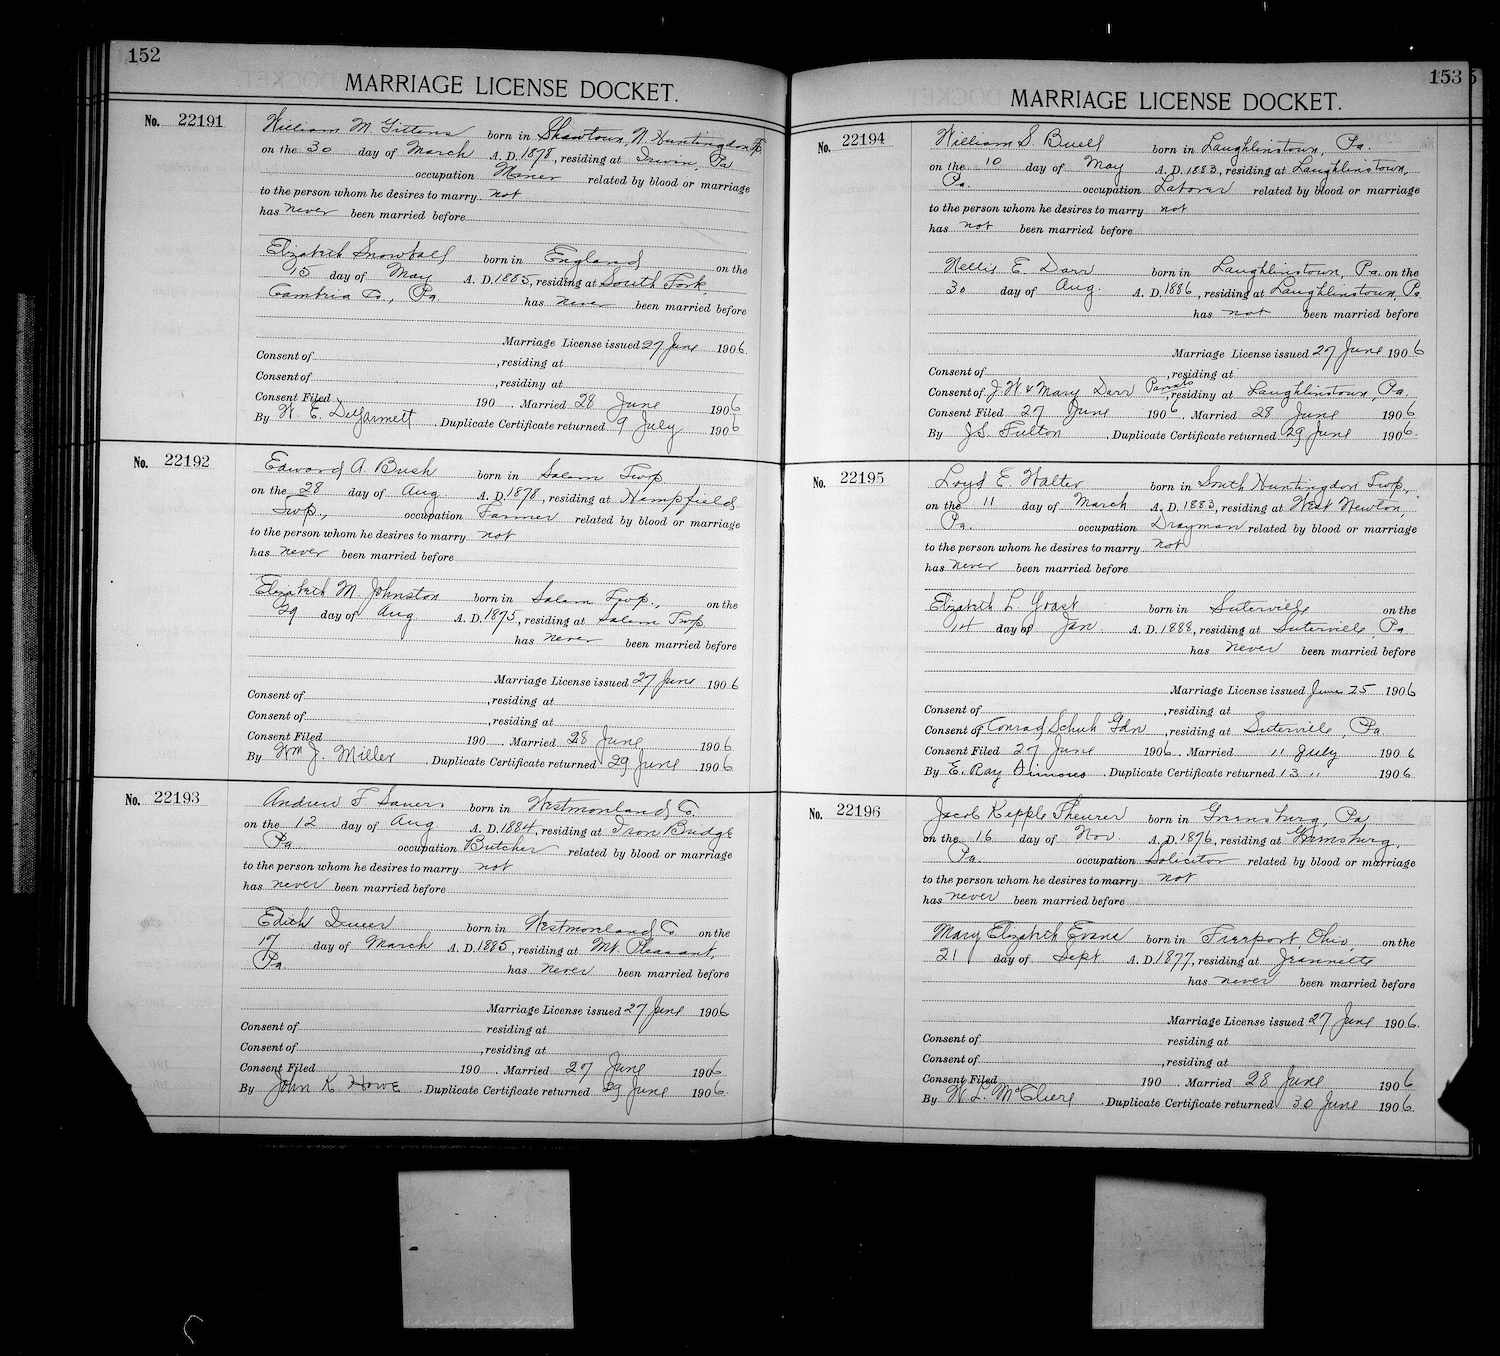 152
MARRIAGE LICENSE DOCKET.
No. 22191
William M. Gittens born in Shawtown, N. Huntingdon Tp.
on the 30 day of March A. D. 1878, residing at Irwin, Pa
occupation Miner related by blood or marriage
to the person whom he desires to marry not
has never been married before
Elizabeth Snowball born in England on the
15 day of May A. D. 1885, residing at South Fork,
Cambria Co., Pa has never been married before
Marriage License issued 27 June 1906.
Consent of , residing at
Consent of , residiny at
Consent Filed 190 . Married 28 June 1906
By W. E. DeGarmett . Duplicate Certificate returned 9 July 1906
No. 22192
Edward A. Bush born in Salem Twp
on the 28 day of Aug A. D. 1878, residing at Hempfield
Twp., occupation Farmer related by blood or marriage
to the person whom he desires to marry not
has never been married before
Elizabeth M. Johnston born in Salem Twp., on the
29 day of Aug A. D. 1875, residing at Salem Twp
has never been married before
Marriage License issued 27 June 1906
Consent of , residing at
Consent of , residing at
Consent Filed 190 . Married 28 June 1906
By Wm J. Miller . Duplicate Certificate returned 29 June 1906
No. 22193
Andrew F. born in Westmoreland Co.
on the 12 day of Aug A. D. 1884, residing at Iron Bridge
Pa. occupation Butcher related by blood or marriage
to the person whom he desires to marry not
has never been married before
Edith born in Westmoreland Co on the
17 day of March A. D. 1885, residing at Mt. Pleasant,
Pa. has never been married before
Marriage License issued 27 June 1906
Consent of residing at
Consent of , residing at
Consent Filed 190 . Married 27 June 1906
By John K. Howe . Duplicate Certificate returned 29 June 1906.
153
MARRIAGE LICENSE DOCKET.
No. 22194
William S. Buell born in Laughlinstown, Pa.
on the 10 day of May A. D. 1883, residing at Laughlinstown,
Pa. occupation Laborer related by blood or marriage
to the person whom he desires to marry not
has not been married before
Nellie E. Darr born in Laughlinstown, Pa. on the
30 day of Aug. A. D. 1886, residing at Laughlinstown, Pa
has not been married before
Marriage License issued 27 June 1906
Consent of , residing at
Consent of J. W. & Mary Darr Parents , residiny at Laughlinstown, Pa.
Consent Filed 27 June 1906. Married 28 June 1906
By J. S. Fulton . Duplicate Certificate returned 29 June 1906.
No. 22195
Loyd E. Walter born in South Huntingdon Twp.,
on the 11 day of March A. D. 1883, residing at West Newton,
Pa. occupation Drayman related by blood or marriage
to the person whom he desires to marry not
has never been married before
Elizabeth L. born in Suterville on the
14 day of Jan. A. D. 1888, residing at Suterville, Pa
has never been married before
Marriage License issued June 25 1906
Consent of , residing at
Consent of Conrad Schuh Gdn , residing at Suterville, Pa.
Consent Filed 27 June 1906. Married 11 July 1906
By E. Ray Simons . Duplicate Certificate returned 13 " 1906
No. 22196
Jacob Kepple Theurer born in Greensburg, Pa
on the 16 day of Nov. A. D. 1876, residing at Greensburg,
Pa. occupation Solicitor related by blood or marriage
to the person whom he desires to marry not
has never been married before
Mary Elizabeth Evans born in Freeport, Ohio, on the
21 day of Sept A. D. 1877, residing at Jeannette
has never been married before
Marriage License issued 27 June 1906.
Consent of residing at
Consent of , residing at
Consent Filed 190 . Married 28 June 1906
By W. L. . Duplicate Certificate returned 30 June 1906.